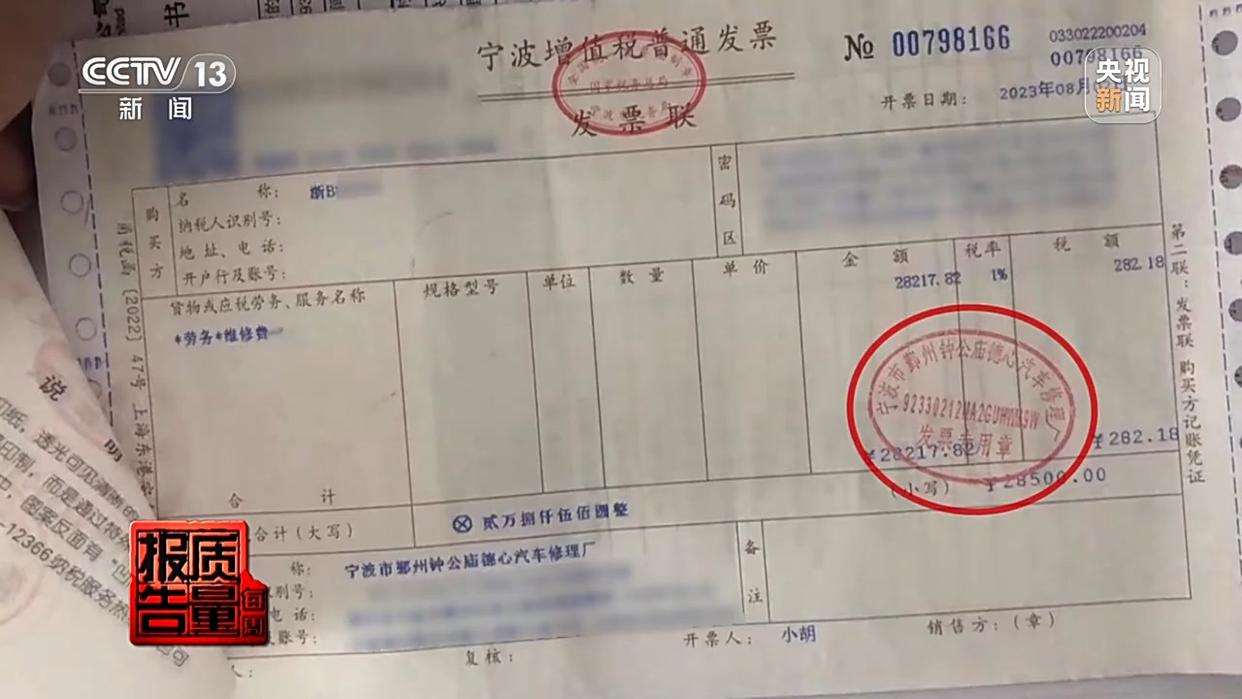 CCTV 13
新闻
央视
新闻
宁波增值税普通发票
发票联
№ 00798166
033022200204
00798166
开票日期：
2023年08月
购买方
名称：
浙B
纳税人识别号：
地址、电话：
开户行及账号：
密码区
货物或应税劳务、服务名称
规格型号
单位
数量
单价
金额
税率
税额
*劳务*维修费
28217.82
1%
282.18
宁波市鄞州钟公庙德心汽车修理厂
发票专用章
合计
￥28217.82
￥282.18
合计（大写）
⊗ 贰万捌仟伍佰圆整
（小写）
￥28500.00
称：
宁波市鄞州钟公庙德心汽车修理厂
别号：
电话：
账号：
备注
复核：
开票人：
小胡
销售方：（章）
第二联：发票联 购买方记账凭证
〔2022〕47号 上海东港
说明
透光可见
而是通过
图案反面有
12366纳税服务热
质量报告
每周